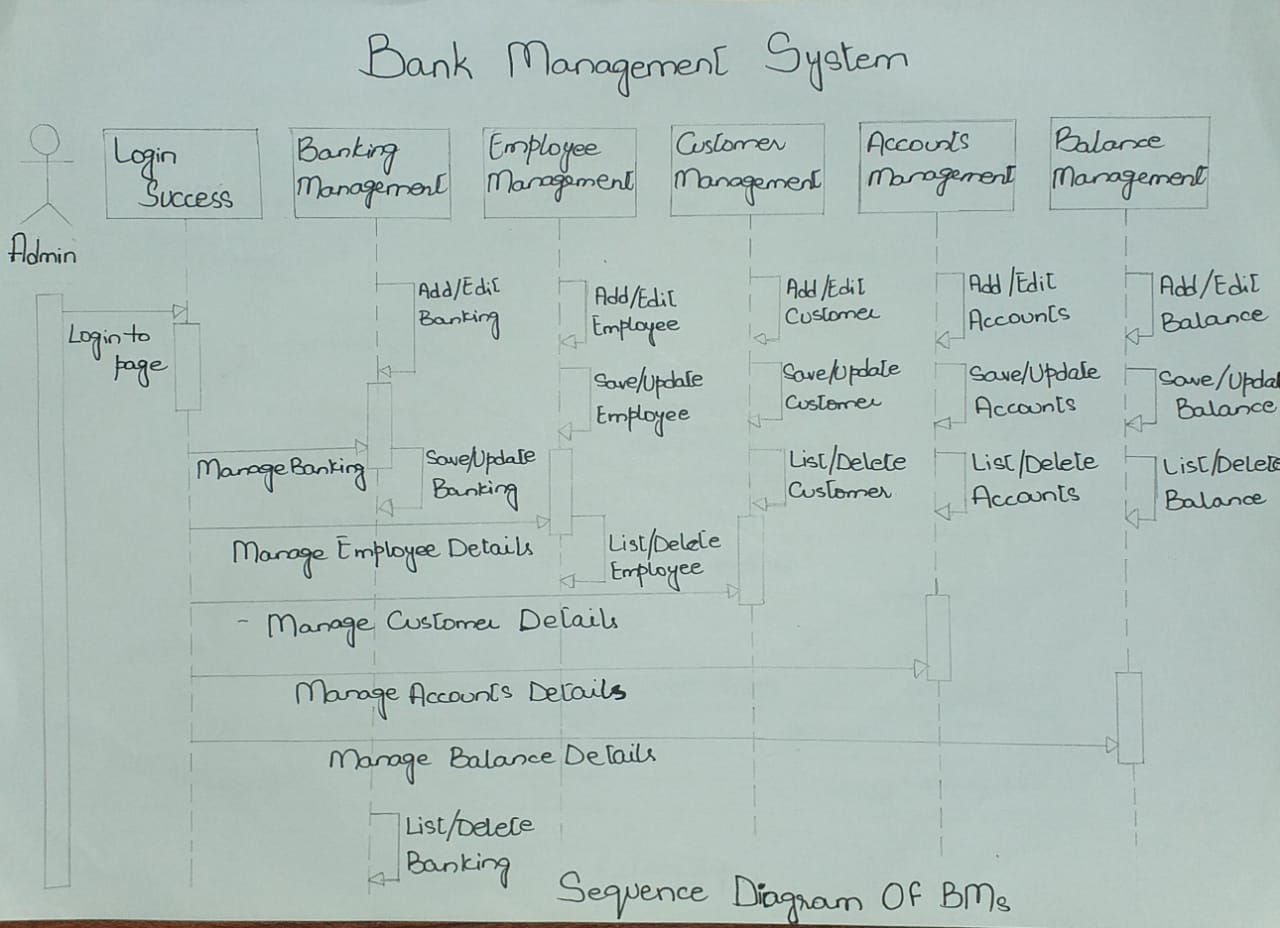 Bank Management System
Login
Success
Banking
Management
Employee
Management
Customer
Management
Accounts
Management
Balance
Management
Admin
Login to
page
Add/Edit
Banking
Add/Edit
Employee
Add/Edit
Customer
Add/Edit
Accounts
Add/Edit
Balance
Save/Update
Employee
Save/Update
Customer
Save/Update
Accounts
Save/Updat
Balance
Manage Banking
Save/Update
Banking
List/Delete
Customer
List/Delete
Accounts
List/Delete
Balance
Manage Employee Details
List/Delete
Employee
- Manage Customer Details
Manage Accounts Details
Manage Balance Details
List/Delete
Banking
Sequence Diagram Of BMs